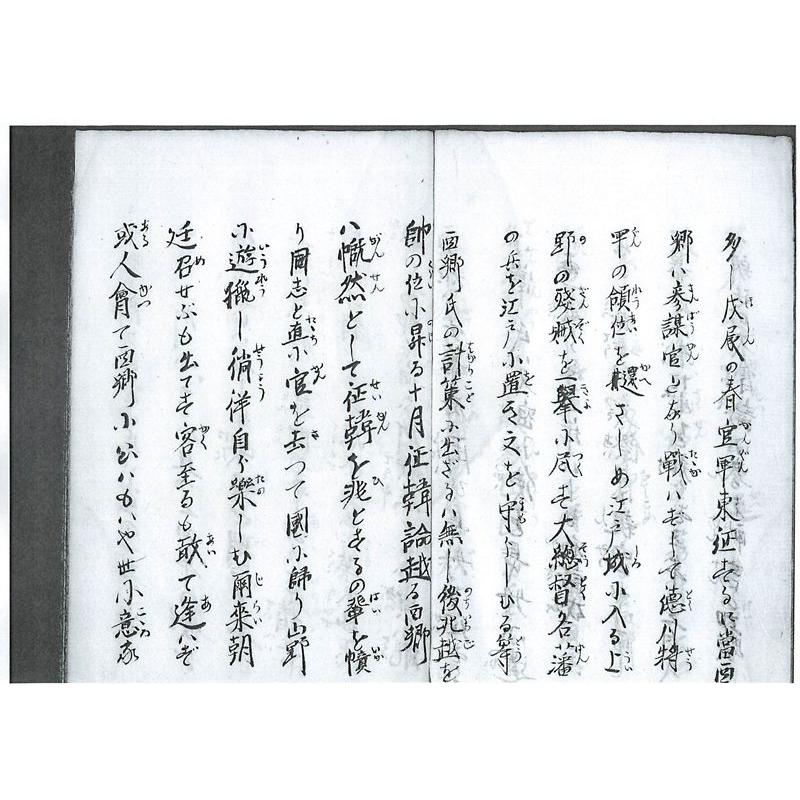 多し戊辰の春官軍東征するに當西
郷ハ参謀官となり戰ハずして徳川将
軍の領位を避さしめ江戸城に入る上
野の殘賊を一擧に尽す大總督各藩
の兵を江戸に置き之を守らしむる等
西郷氏の計策に出ざるハ無し後北越を
帥の位に昇る十月征韓論起る西郷
ハ慨然として征韓を非とするの輩を憤
り同志と直に官を去つて國に歸り山野
に遊猟し徜徉自ら樂しむ爾来朝
廷召せども出でず客至るも敢て逢ハず
或人曾て西郷に公ハもハや世に意な